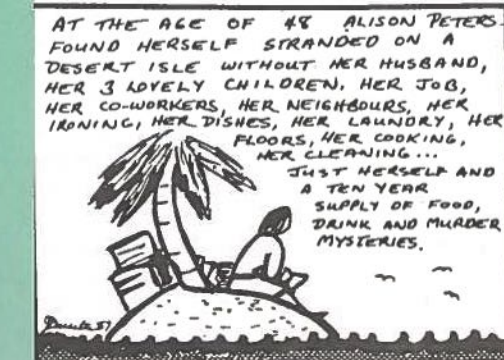 AT THE AGE OF 48 ALISON PETERS
FOUND HERSELF STRANDED ON A
DESERT ISLE WITHOUT HER HUSBAND,
HER 3 LOVELY CHILDREN. HER JOB,
HER CO-WORKERS, HER NEIGHBOURS, HER
IRONING, HER DISHES, HER LAUNDRY, HER
FLOORS, HER COOKING,
HER CLEANING...
JUST HERSELF AND
A TEN YEAR
SUPPLY OF FOOD,
DRINK AND MURDER
MYSTERIES.